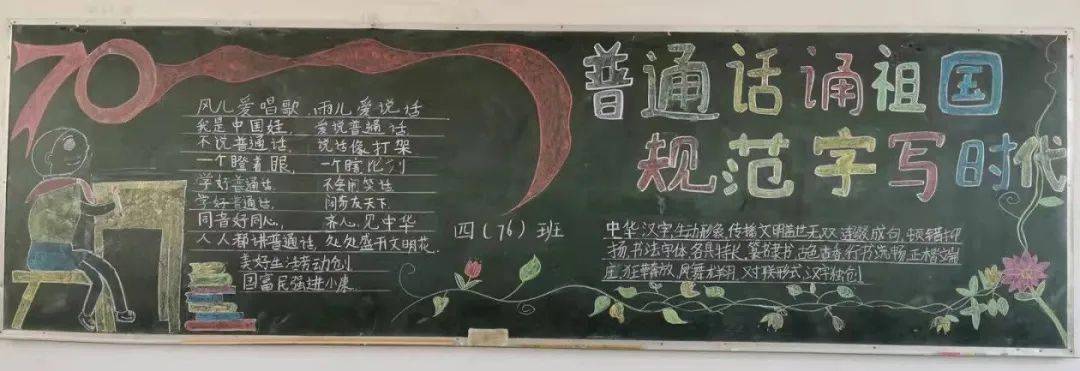 70
普通话诵祖国
规范字写时代
风儿爱唱歌 雨儿爱说话
我是中国娃 爱说普通话
不说普通话 说话像打架
一个瞪着眼 一个瞎比划
学好普通话 不会闹笑话
学好普通话 朋友天下
同音好同心 齐心见中华
人人都讲普通话 处处盛开文明花
美好生活劳动创
国富民强进小康
四(76)班
中华汉字,生动形象,传播文明,盖世无双,连缀成句,顿错抑
扬,书法字体,各具特长,篆书隶书,古色古香,行书流畅,正楷端
庄,狂草奔放,凤舞龙翔,对联形式,汉字独创